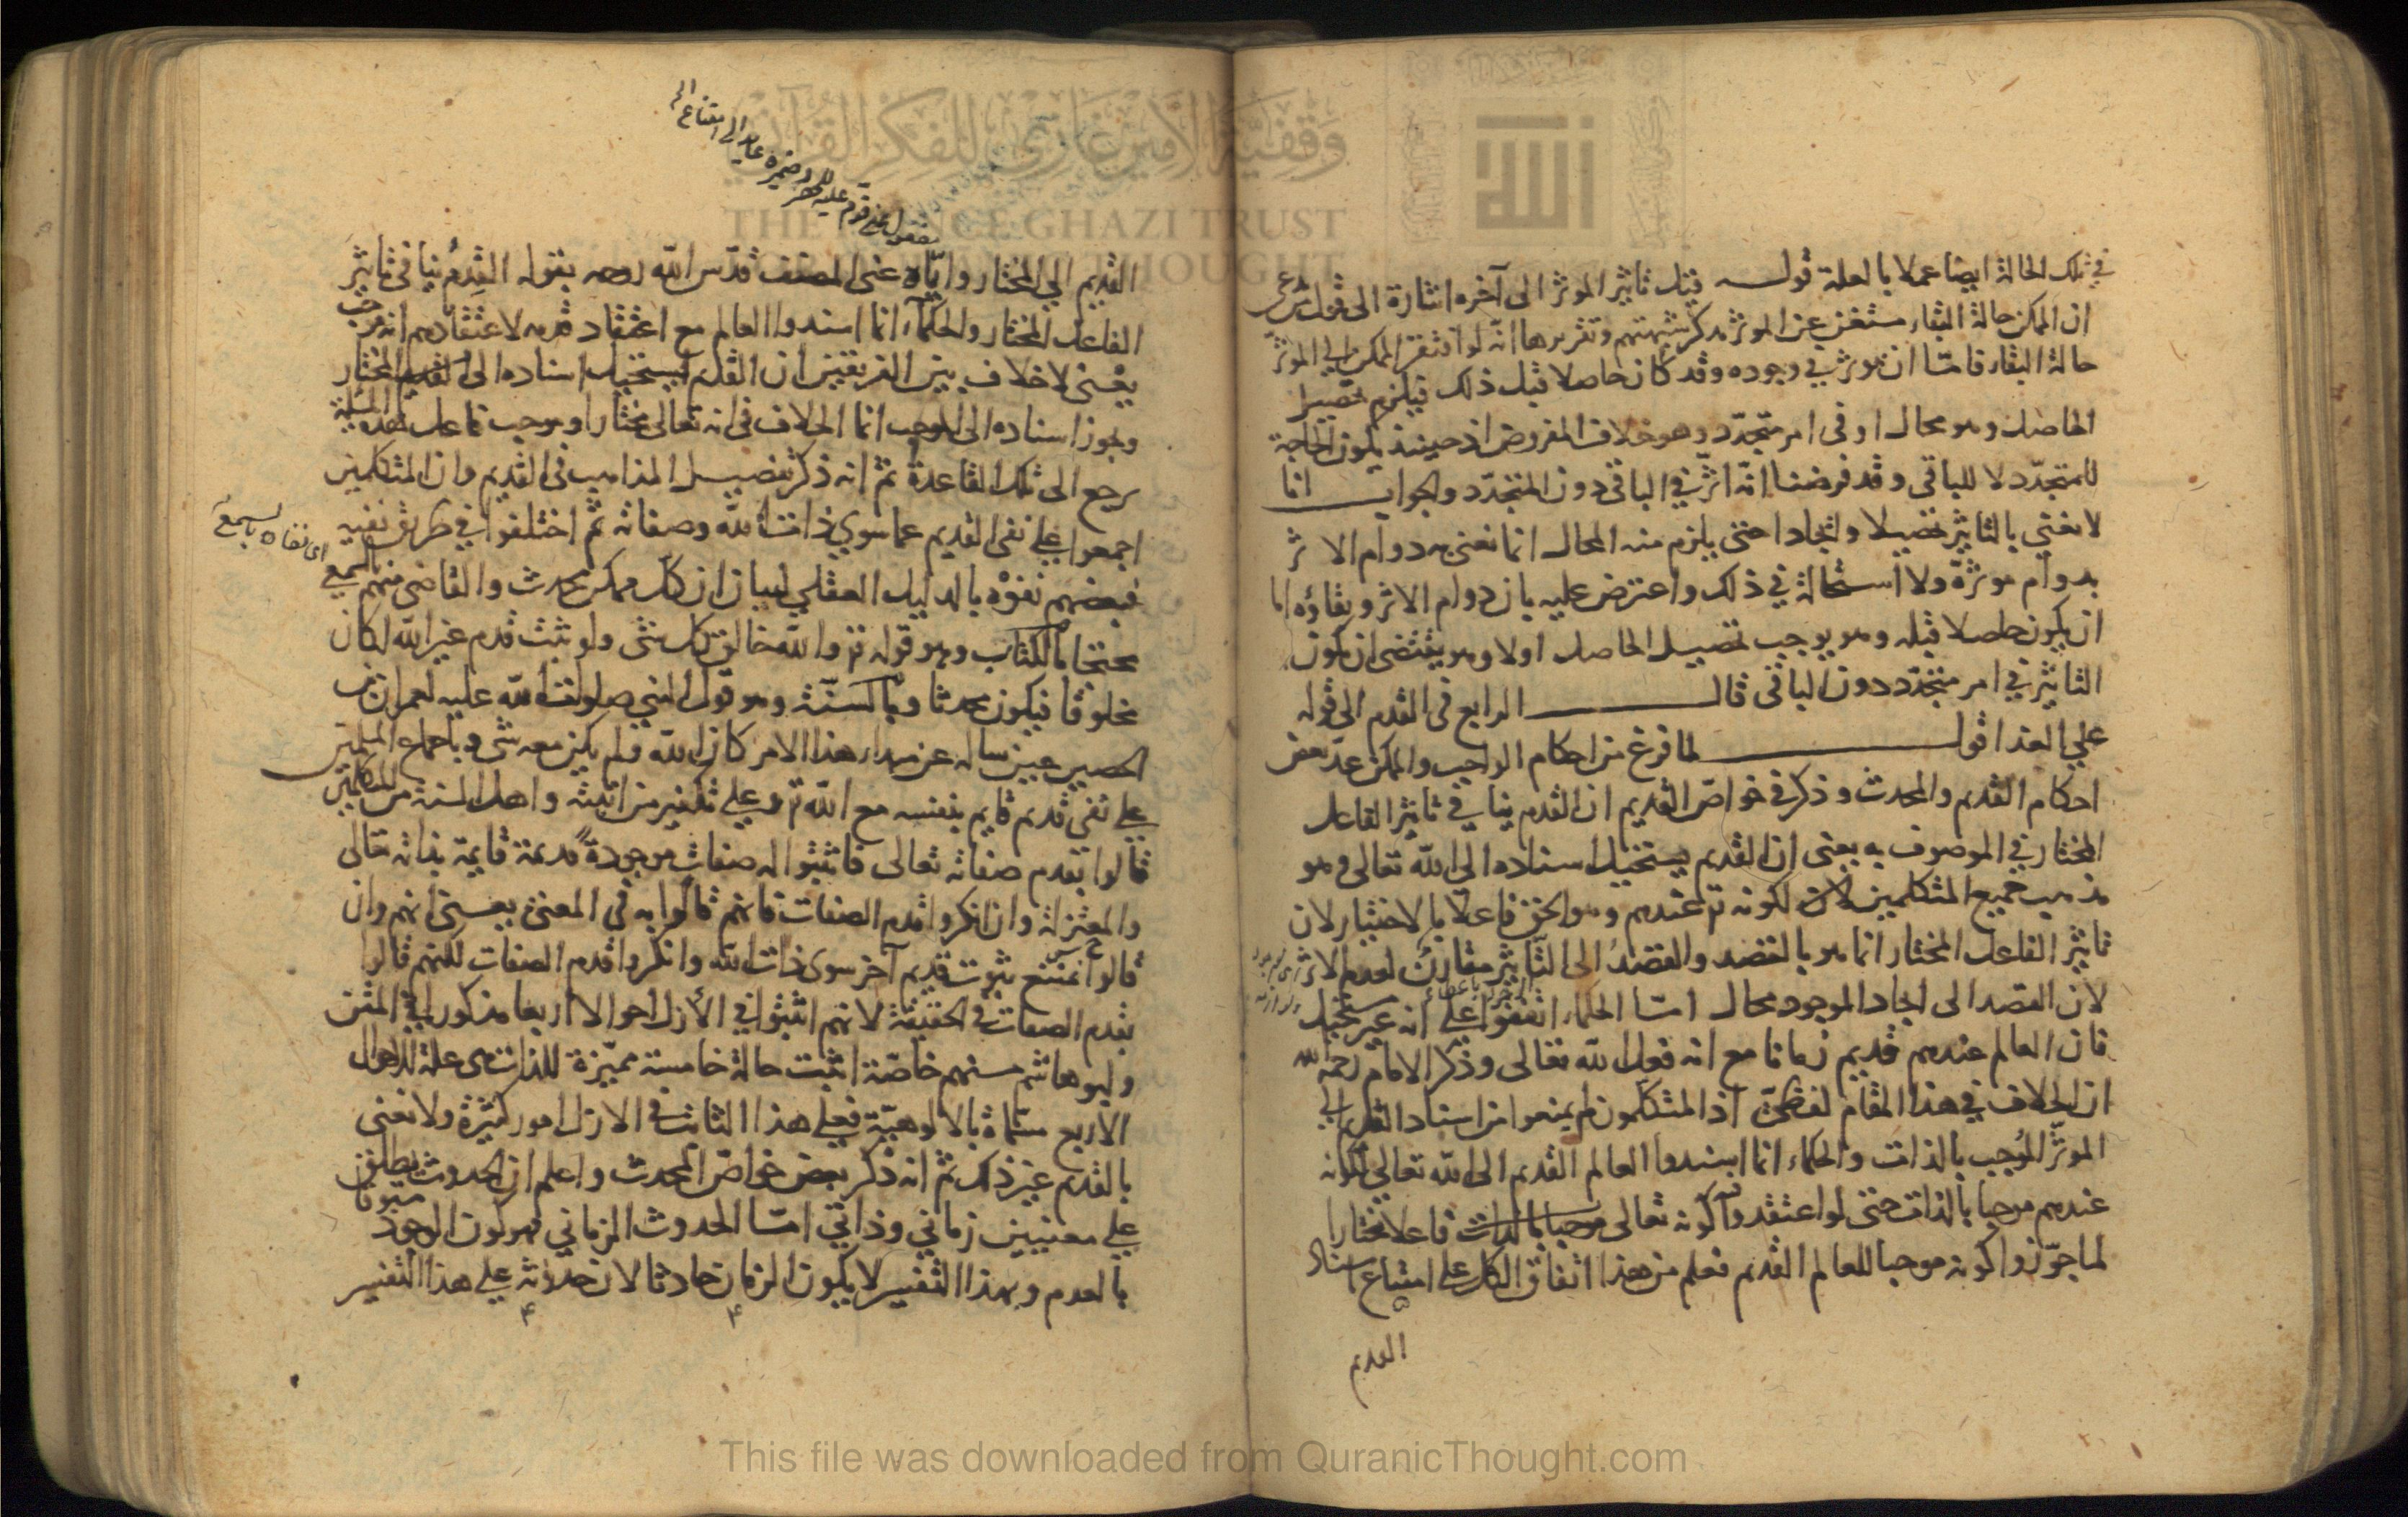 في تلك الحالة ايضا عملا بالعلة قوله قيل تاثير الموثر الى آخره اشارة الى قول من زعم
ان الممكن حالة البقاء مستغن عن الموثر مذكر شبهتهم وتقريرها انه لو افتقر الممكن الي الموثر
حالة البقاء فامّا ان يوثر في وجوده وقد كان حاصلا قبل ذلك فيلزم تحصيل
الحاصل وهو محال او في امر متجدّد وهو خلاف المفروض اذ حينئذ يكون الحاجة
للمتجدّد لا للباقي وقد فرضنا انه اثّر في الباقي دون المتجدّد والجواب انا
لا نعني بالتاثير تحصيلا وايجادا حتى يلزم منه المحال انما نعني به دوام الاثر
بدوام موثرة ولا استحالة في ذلك واعترض عليه بان دوام الاثر وبقاؤه اما
ان يكون حاصلا قبله وهو يوجب تحصيل الحاصل اولا وهو يقتضي ان يكون
التاثير في امر متجدّد دون الباقي قال الرابع في القدم الى قوله
علي العدا قول لما فرغ من احكام الواجب والممكن عدّ بعض
احكام القدم والمحدث وذكر في خواصّ القديم ان القدم ينافي تاثير الفاعل
المختار في الموصوف به يعني ان القديم يستحيل اسناده الى الله تعالى وهو
مذهب جميع المتكلمين لكونه تع عندهم وهو الحق فاعلا بالاختيار لان
تاثير الفاعل المختار انما هو بالقصد والقصد الى التاثير مقارن لعدم الاثر
لان القصد الى ايجاد الموجود محال امّا الحكماء اتفقوا على انه غير مستحيل
فان العالم عندهم قديم زمانا مع انه فعل الله تعالى وذكر الامام رحمه الله
ان الخلاف في هذا المقام لفظيّ اذ المتكلمون لم يمنعوا من اسناد القديم الي
الموثر الموجب بالذات والحكماء انما اسندوا العالم القديم الى الله تعالى لكونه
عندهم موجبا بالذات حتى لو اعتقدوا كونه تعالى موجبا بالذات فاعلا مختارا
لما جوّزوا كونه موجبا للعالم القديم فعلم من هذا اتفاق الكل على امتناع اسناد
القديم
القديم الي المختار واياه عني المصنف قدّس الله روحه بقوله القدم ينافي تاثير
الفاعل المختار والحكماء انما اسندوا العالم مع اعتقاد قدمه لاعتقادهم انه موجب
يعني لا خلاف بين الفريقين ان القديم يستحيل اسناده الى القديم المختار
ويجوز اسناده الى الموجب انما الخلاف في انه تعالى مختار او موجب فاعل هذه المسئلة
يرجع الى تلك القاعدة ثم انه ذكر تفصيل المذاهب في القديم وان المتكلمين
اجمعوا على نفي القديم عما سوي ذات الله وصفاته ثم اختلفوا في طريق نفيه
فبعضهم نفوه بالدليل العقلي لبيان ان كل ممكن محدث والقاضي منهم بالسمع
اى نفاه بالسمع
محتجا بالكتاب وهو قوله تع والله خالق كل شئ ولو ثبت قدم غير الله لكان
مخلوقا فيكون محدثا وبالسنّة وهو قول النبي صلوات الله عليه لعمران بن
الحصين حين ساله عن مبداء هذا الامر كان الله ولم يكن معه شئ وباجماع المسلمين
على نفي قديم قايم بنفسه مع الله تع وعلي تكفير من اثبته واهل السنة من المتكلمين
قالوا بقدم صفاته تعالى فاثبتوا له صفات موجودة قديمة قايمة بذاته تعالى
والمعتزلة وان انكروا قدم الصفات فانهم قالوا به في المعنى يعني انهم وان
قالوا يمتنع ثبوت قديم آخر سوى ذات الله وانكروا قدم الصفات لكنهم قالوا
بقدم الصفات في الحقيقة لانهم اثبتوا في الازل احوالا اربعا مذكورا في المتن
وابو هاشم منهم خاصّة اثبت حالة خامسة مميّزة للذات هي علة للاحوال
الاربع مسمّاة بالالوهيّة فعلى هذا الثابت في الازل امور كثيرة ولا نعني
بالقدم غير ذلك ثم انه ذكر بعض خواصّ المحدث واعلم ان الحدوث يطلق
علي معنيين زماني وذاتي امّا الحدوث الزماني فهو كون الوجود مسبوقا
بالعدم وبهذا التفسير لا يكون الزمان حادثا لان حدوثه على هذا التفسير
وقفية الأمير غازي للفكر القرآني
THE PRINCE GHAZI TRUST
THOUGHT
الله
This file was downloaded from QuranicThought.com